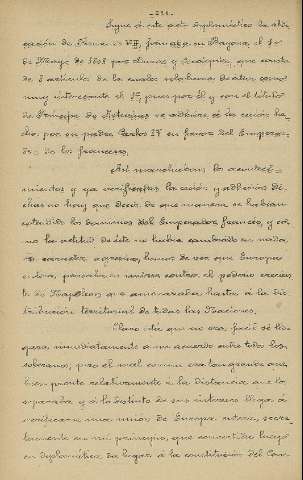 Sigue á este acto diplomático la abdi-
cación de Fernando VII, firmada en Bayona, el 10
de Mayo de 1808 por el mismo y Escoiquiz, que consta
de 8 artículos de los cuales debe
muy interesante el 1º, pues por él y con el título
de Príncipe de Asturias se adhiere á la cesión he-
cha, por su padre Carlos IV en favor del Empera-
dor de los franceses.
Así marchaban los aconteci-
mientos y ya verificadas la cesión y adhesión di-
chas no hay que decir de que manera se habían
extendido los dominios del Emperador francés, y có-
mo la actitud de éste no había cambiado en nada
su carácter agresivo, hemos de ver que Europa
entera, pensaba en unirse contra el poderío crecien-
te de Napoleón que amenazaba hasta á la dis-
tribución territorial de todas las Naciones.
Claro está que no era fácil de lle-
garse inmediatamente á un acuerdo entre todos los
soberanos; pero el mal común era tan grande que
bien pronto relativamente á la distancia que los
separaba y á lo distinto de sus intereses llega á
verificarse una unión de Europa entera, secre-
tamente en un principio, que convertida luego
en diplomática da lugar á la constitución del Con-